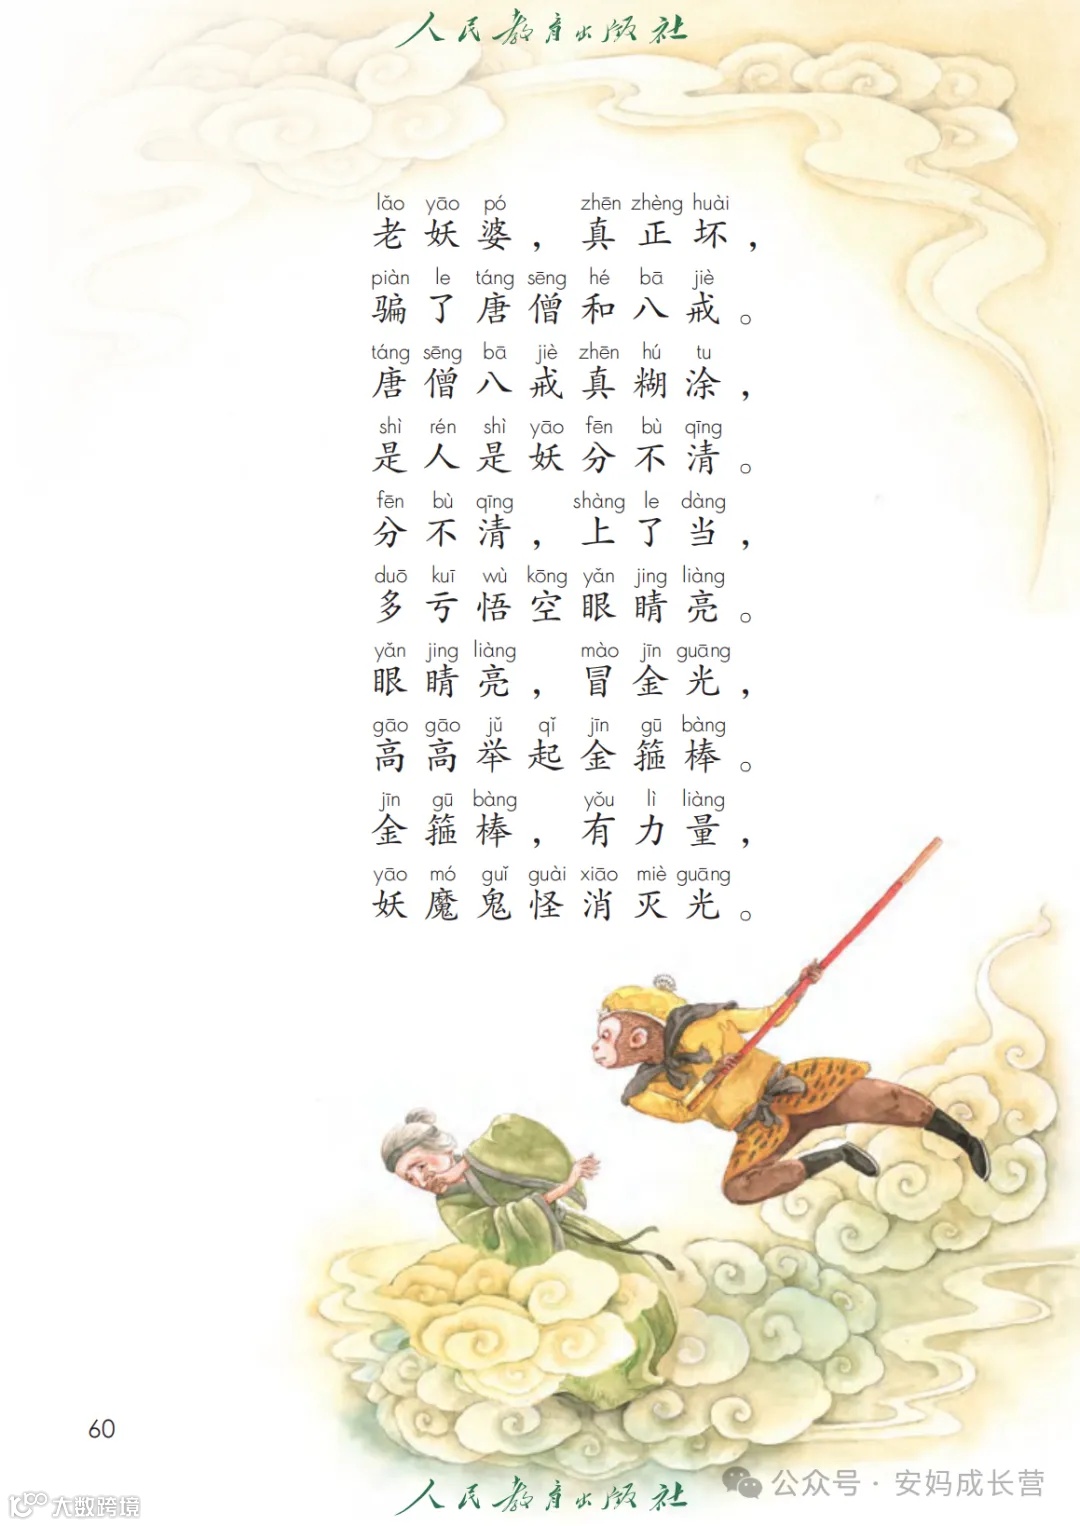 人民教育出版社
lǎo yāo pó zhēn zhèng huài
老妖婆，真正坏，
piàn le táng sēng hé bā jiè
骗了唐僧和八戒。
táng sēng bā jiè zhēn hú tu
唐僧八戒真糊涂，
shì rén shì yāo fēn bù qīng
是人是妖分不清。
fēn bù qīng shàng le dàng
分不清，上了当，
duō kuī wù kōng yǎn jing liàng
多亏悟空眼睛亮。
yǎn jing liàng mào jīn guāng
眼睛亮，冒金光，
gāo gāo jǔ qǐ jīn gū bàng
高高举起金箍棒。
jīn gū bàng yǒu lì liàng
金箍棒，有力量，
yāo mó guǐ guài xiāo miè guāng
妖魔鬼怪消灭光。
60
公众号·安妈成长营
人民教育出版社
大数跨境